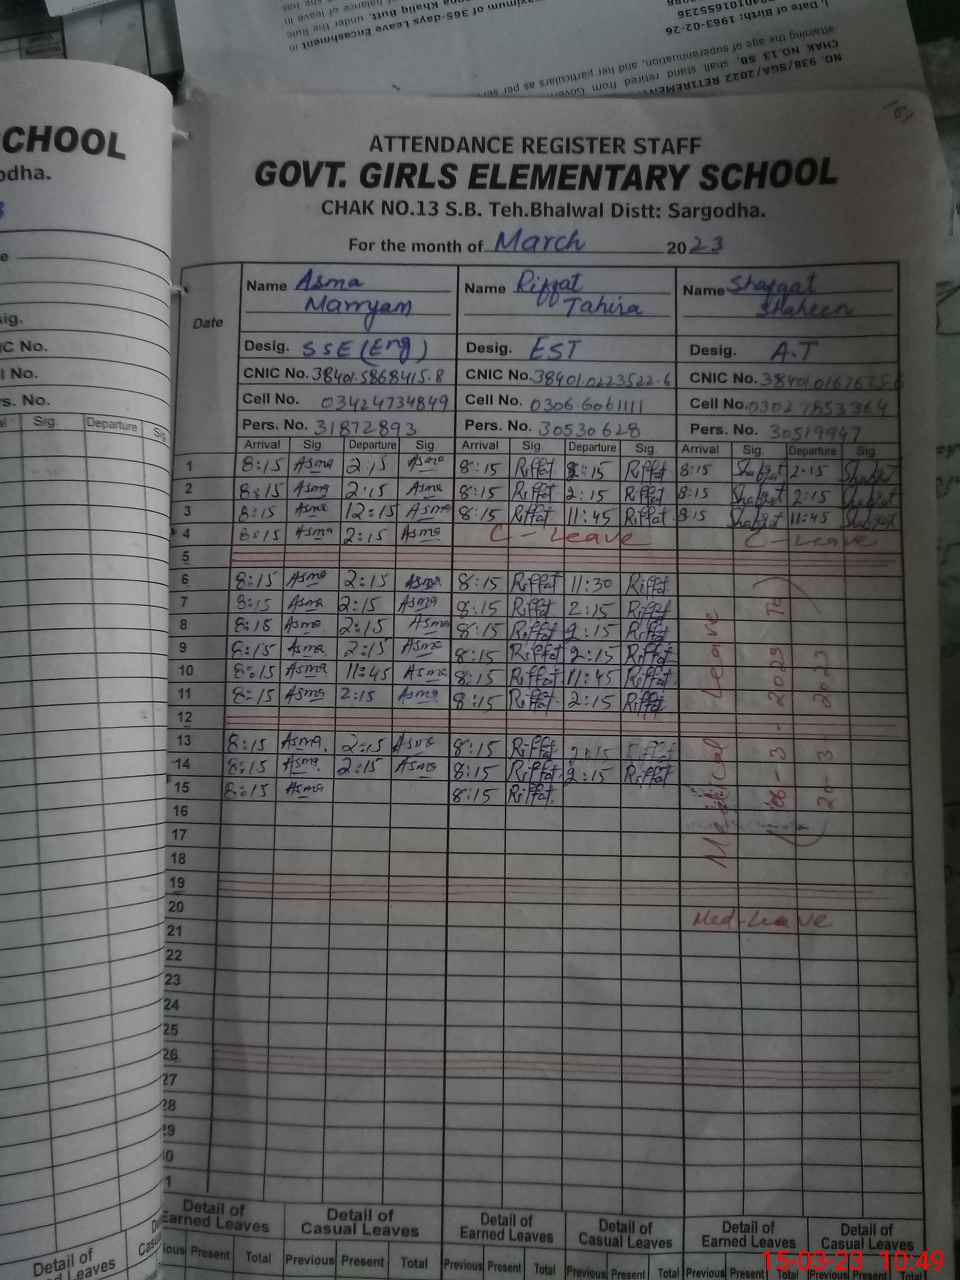 maximum of 365-days Leave Encashment in
Khalid Butt, under the Rule
balance of leave in
1. Date of Birth: 1963-02-26
attaining the age of superannuation, and her particulars as per
CHAK NO.13 SB, shall stand retired from
NO. 938/SGA/2022 RETIREMENT
161
CHOOL
odha.
ATTENDANCE REGISTER STAFF
GOVT. GIRLS ELEMENTARY SCHOOL
CHAK NO.13 S.B. Teh.Bhalwal Distt: Sargodha.
For the month of March 2023
Date
Name Asma Marryam Name Riffat Tahira Name Shafqat Shaheen
Desig. SSE (Eng) Desig. EST Desig. A.T
CNIC No. 38401.5868415.8 CNIC No. 38401.0223522-6 CNIC No.
Cell No. 03424734849 Cell No. 0306.6061111 Cell No. 03027853364
Pers. No. 31872893 Pers. No. 30530628 Pers. No. 30519947
Arrival Sig. Departure Sig. Arrival Sig. Departure Sig. Arrival Sig. Departure Sig.
1 8:15 Asma 2:15 Asma 8:15 Riffat 2:15 Riffat 8:15 Shafqat 2:15 Shafqat
2 8:15 Asma 2:15 Asma 8:15 Riffat 2:15 Riffat 8:15 Shafqat 2:15 Shafqat
3 8:15 Asma 12:15 Asma 8:15 Riffat 11:45 Riffat 8:15 Shafqat 11:45 Shafqat
4 8:15 Asma 2:15 Asma C - Leave C - Leave
5
6 8:15 Asma 2:15 Asma 8:15 Riffat 11:30 Riffat
7 8:15 Asma 2:15 Asma 8:15 Riffat 2:15 Riffat
8 8:15 Asma 2:15 Asma 8:15 Riffat 2:15 Riffat
9 8:15 Asma 2:15 Asma 8:15 Riffat 2:15 Riffat
10 8:15 Asma 11:45 Asma 8:15 Riffat 11:45 Riffat
11 8:15 Asma 2:15 Asma 8:15 Riffat 2:15 Riffat
12
13 8:15 Asma 2:15 Asma 8:15 Riffat 2:15 Riffat
14 8:15 Asma 2:15 Asma 8:15 Riffat 2:15 Riffat
15 8:15 Asma 8:15 Riffat
Medical Leave
(06-3-2023 To
20-3-2023)
16
17
18
19
20 Med-Leave
21
22
23
24
25
26
27
28
29
30
31
Detail of Earned Leaves Detail of Casual Leaves Detail of Earned Leaves Detail of Casual Leaves Detail of Earned Leaves Detail of Casual Leaves
Previous Present Total Previous Present Total Previous Present Total Previous Present Total Previous Present Total Previous Present Total
ig.
C No.
l No.
rs. No.
Sig. Departure Sig.
Detail of
ned Leaves
15-03-23 10:49